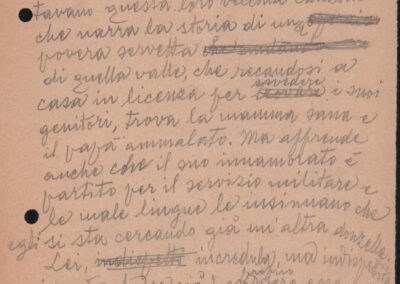 tavano questa loro vecchia
che narra la storia di una
povera servetta che andava
di quella valle, che recandosi a
casa in licenza per rivedere trovare i suoi
genitori, trova la mamma sana e
il papà ammalato. Ma apprende
anche che il suo innamorato è
partito per il servizio militare e
le male lingue le insinuano che
egli si sta cercando già un'altra donzella.
Lei, incredula, ma indispettita
proprio